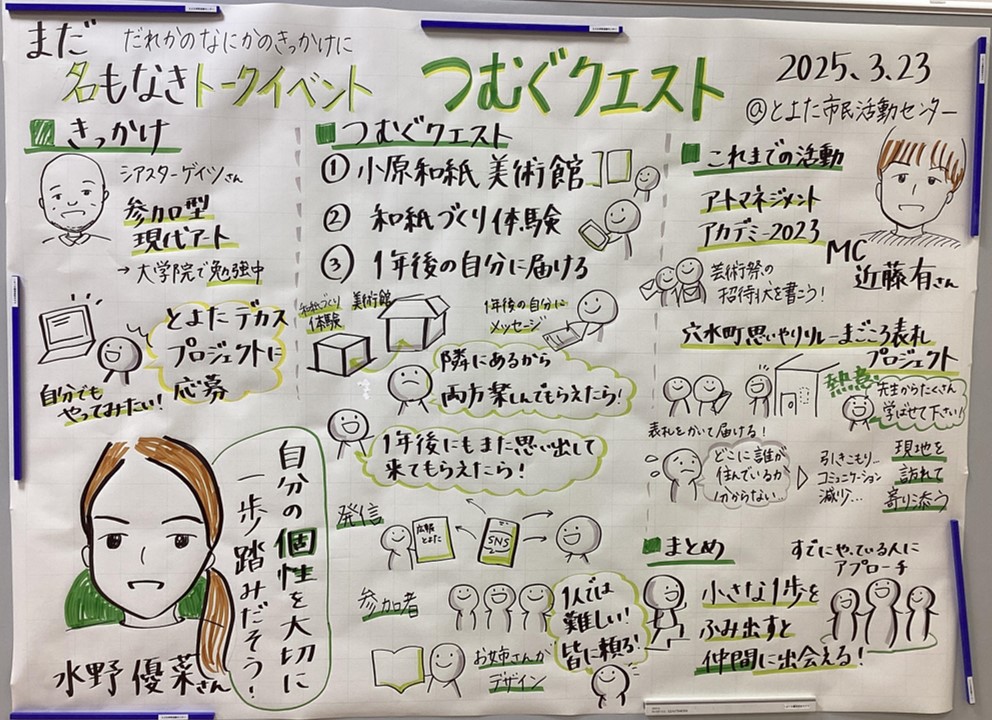 まだ だれかのなにかのきっかけに
名もなきトークイベント
つむぐクエスト
2025.3.23
@とよた市民活動センター
きっかけ
シアスターゲイツさん
参加型
現代アート
→大学院で勉強中
とよたデカス
プロジェクトに
応募
自分でも
やってみたい!
自分の個性を大切に
一歩踏みだそう!
水野 優菜さん
つむぐクエスト
① 小原和紙 美術館
② 和紙づくり体験
③ 1年後の自分に届ける
和紙づくり
体験
美術館
1年後の自分に
メッセージ
隣にあるから
両方楽しんでもらえたら!
1年後にもまた思い出して
来てもらえたら!
発信
広報
とよた
SNS
参加者
1人では
難しい!
皆に頼る!
お姉さんが
デザイン
これまでの活動
アートマネジメント
アカデミー2023
MC
近藤有さん
芸術祭の
招待状を書こう!
穴水町思いやりリレーまごころ表札
プロジェクト
熱意
先生からたくさん
学ばせて下さい!
表札をかいて届ける!
どこに誰が
住んでいるか
分からない…
引きこもり…
コミュニケーション
減少…
現地を
訪れて
寄り添う
まとめ
すでにやっている人に
アプローチ
小さな1歩を
ふみ出すと
仲間に出会える!